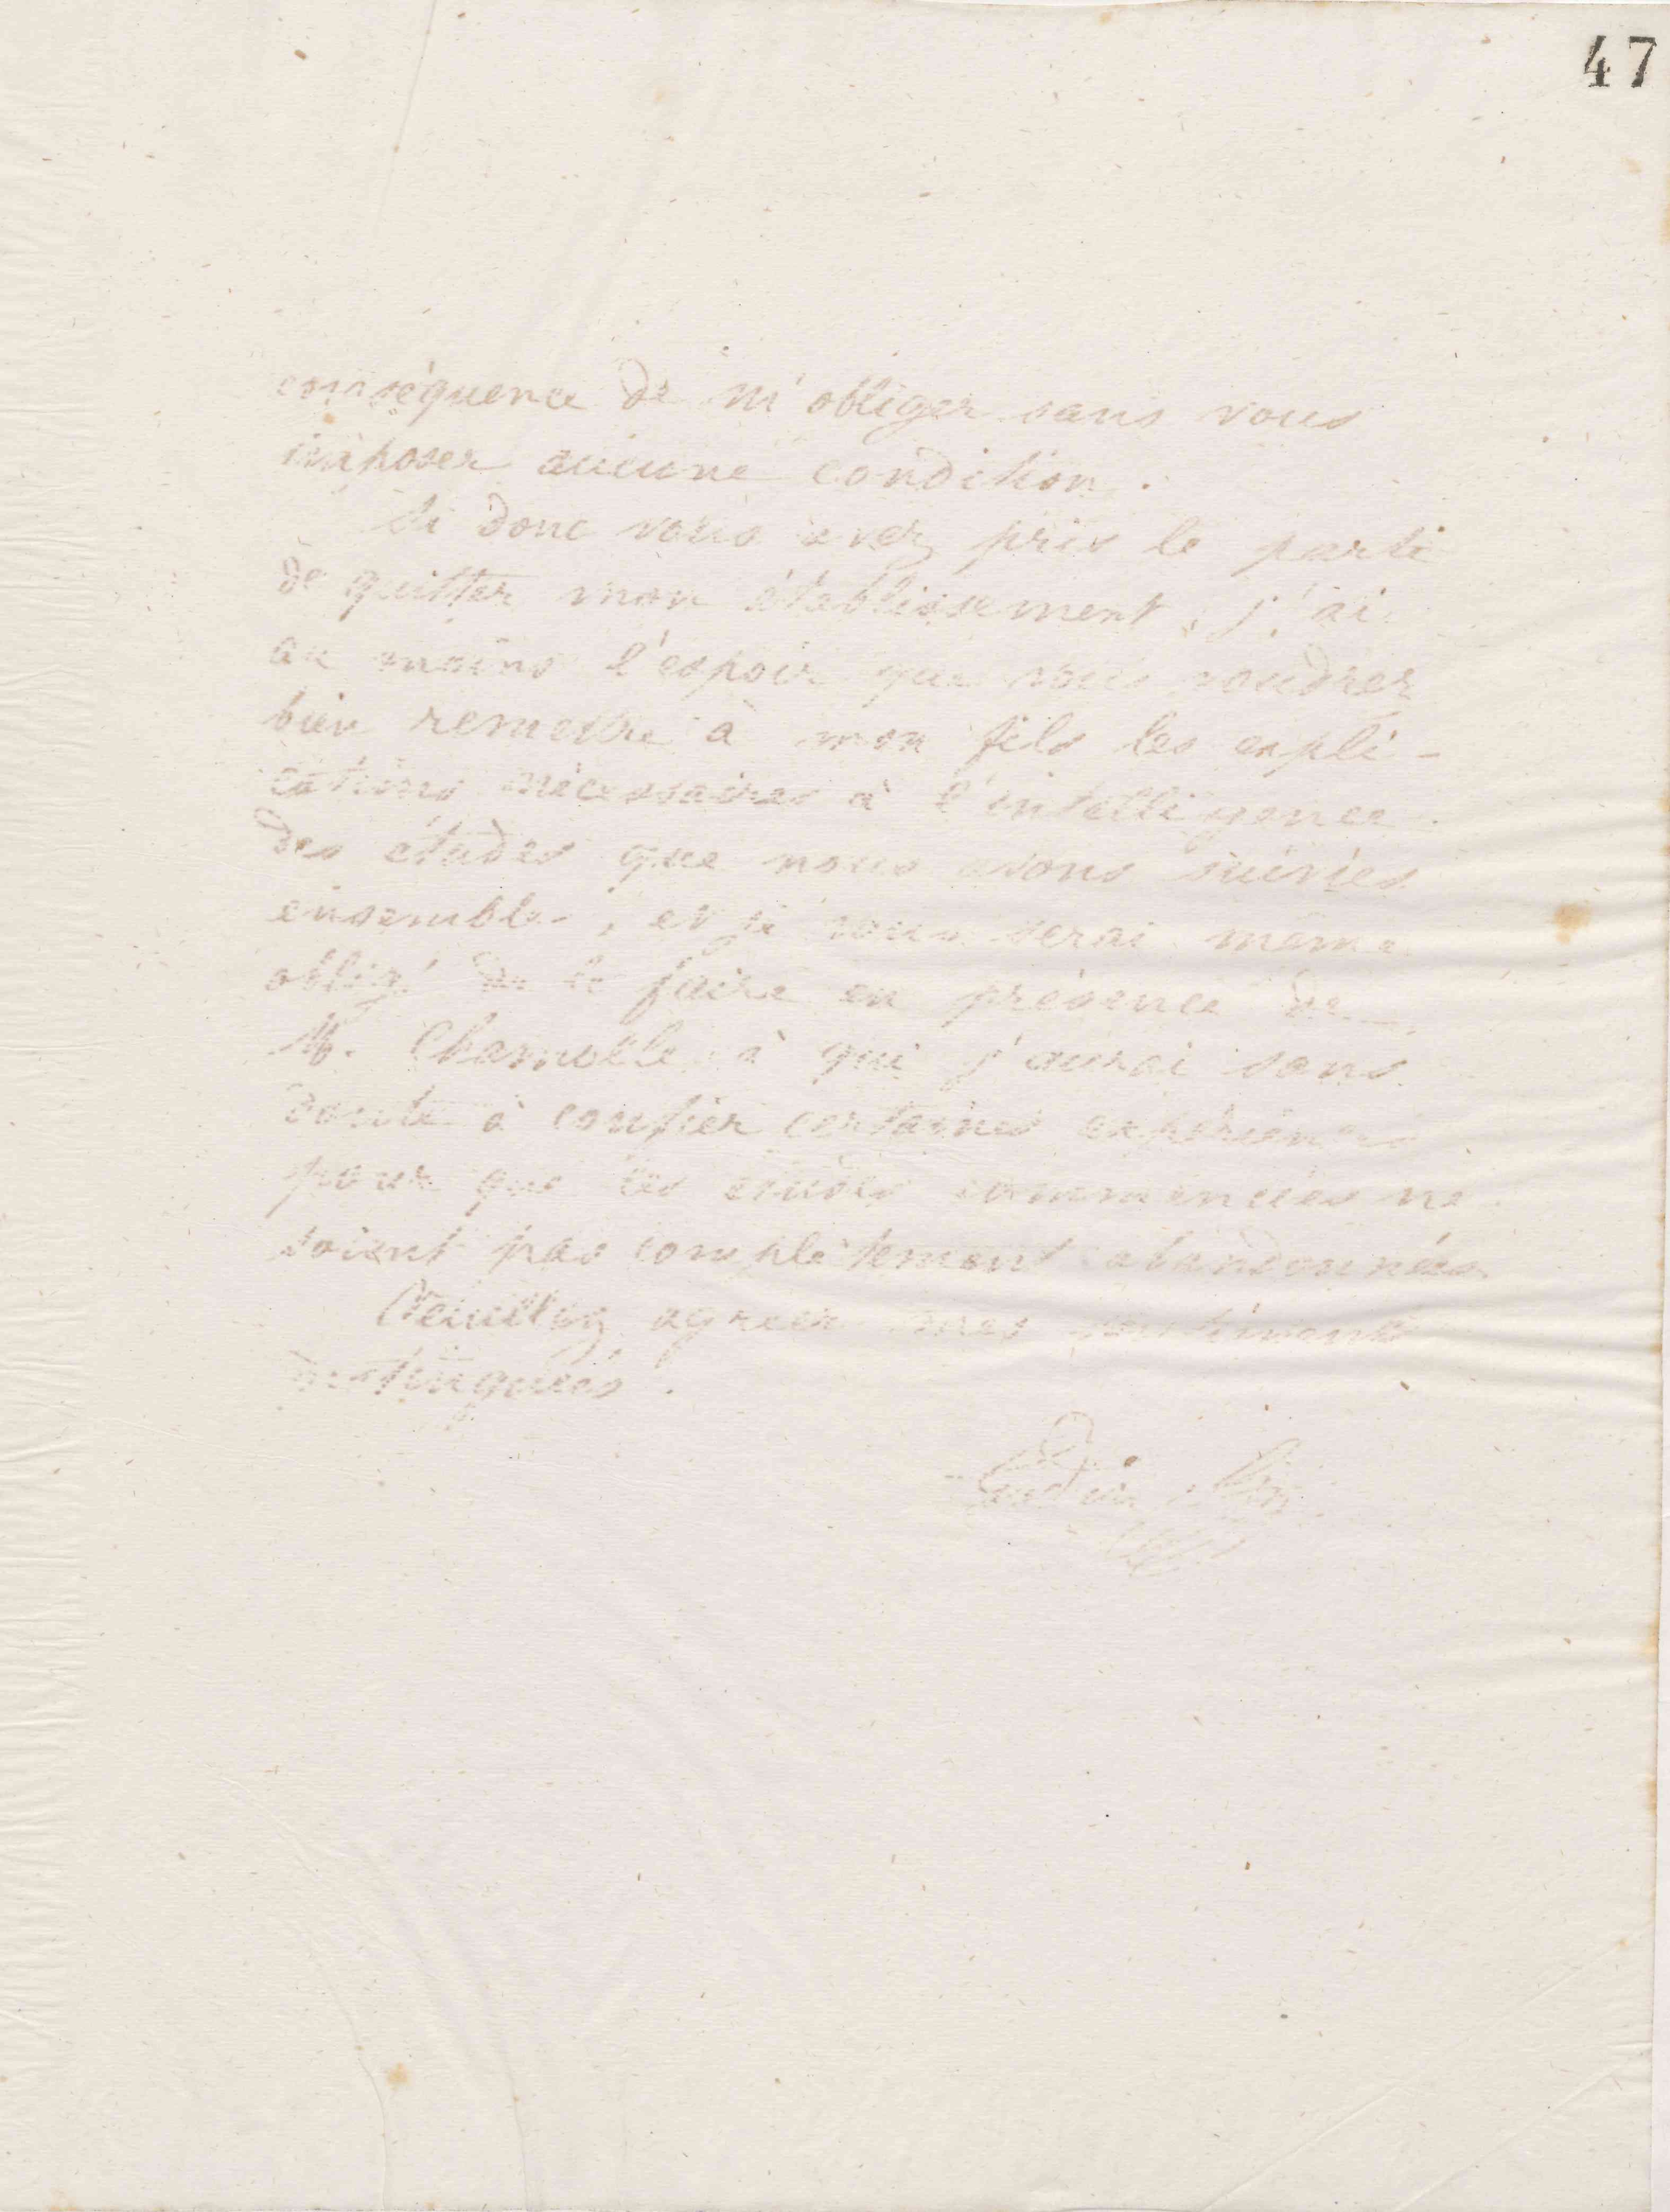 47
conséquence de m'obliger sans vous
imposer aucune condition.
Si donc vous avez pris le parti
de quitter mon établissement, j'ai
au moins l'espoir que vous voudrez
bien remettre à mon fils les expli-
cations nécessaires à l'intelligence
des études que nous avons suivies
ensemble, et je vous serai même
obligé de le faire en présence de
M. à qui j'aurai sans
doute à confier certaines expériences
pour que les études commencées ne
soient pas complètement abandonnées
Veuillez agréer mes sentiments
distingués.
Godin